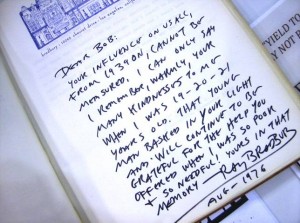 DEAR BOB:
YOUR INFLUENCE ON US ALL,
FROM 1939 ON CANNOT BE
MEASURED. I CAN ONLY SAY
I REMEMBER, WARMLY, YOUR
MANY KINDNESSES TO ME
WHEN I WAS 19-20-21
YEARS OLD. THAT YOUNG
MAN BASKED IN YOUR LIGHT
AND WILL CONTINUE TO BE
GRATEFUL FOR THE HELP YOU
OFFERED WHEN I WAS SO POOR
+ SO NEEDFUL! YOURS IN THAT
MEMORY — RAY BRADBURY
AUG - 1976
YIELD TO